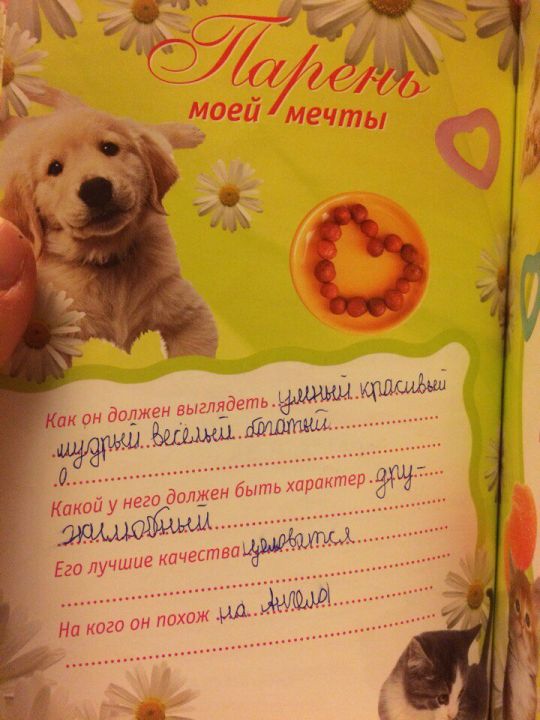 Парень
моей мечты
Как он должен выглядеть умный красивый
мудрый весёлый богатый
Какой у него должен быть характер дру-
жилюбный
Его лучшие качества целоватся
На кого он похож на Ангела